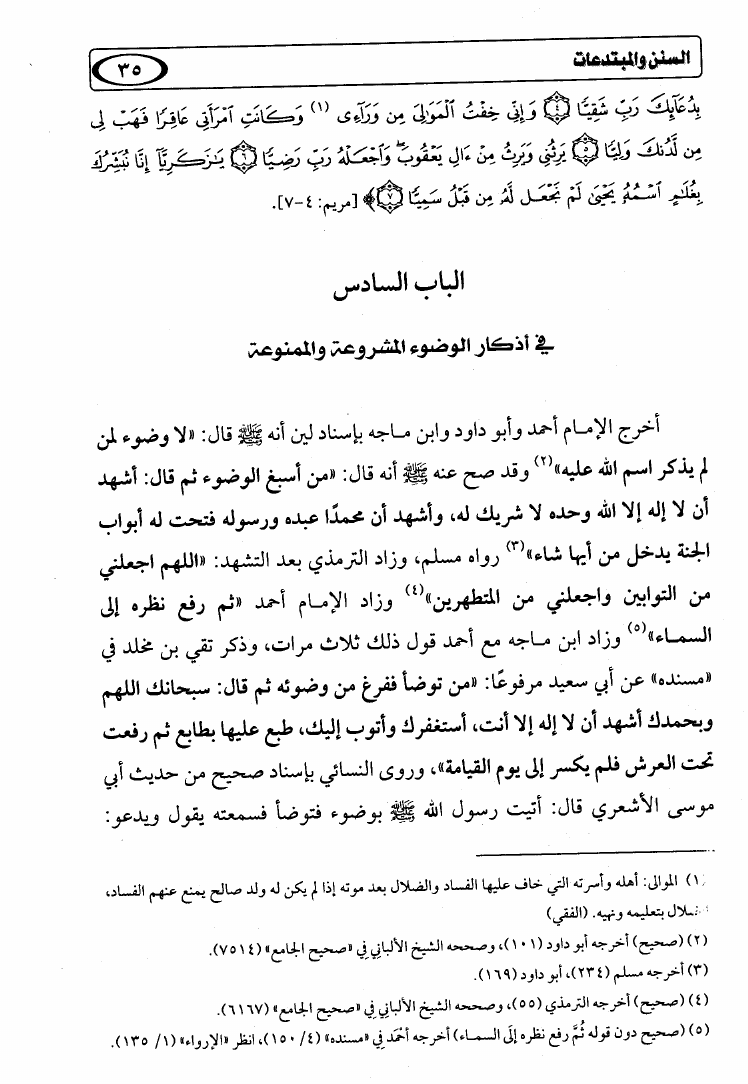 السنن والمبتدعات
٣٥
بِدُعَآئِكَ رَبِّ شَقِيًّا ۝٤ وَإِنِّى خِفْتُ ٱلْمَوَٰلِىَ مِن وَرَآءِى (١) وَكَانَتِ ٱمْرَأَتِى عَاقِرًا فَهَبْ لِى
مِن لَّدُنكَ وَلِيًّا ۝٥ يَرِثُنِى وَيَرِثُ مِنْ ءَالِ يَعْقُوبَ ۖ وَٱجْعَلْهُ رَبِّ رَضِيًّا ۝٦ يَٰزَكَرِيَّآ إِنَّا نُبَشِّرُكَ
بِغُلَٰمٍ ٱسْمُهُۥ يَحْيَىٰ لَمْ نَجْعَل لَّهُۥ مِن قَبْلُ سَمِيًّا ۝٧﴾ [مريم: ٤-٧].
الباب السادس
في أذكار الوضوء المشروعة والممنوعة
أخرج الإمام أحمد وأبو داود وابن ماجه بإسناد لين أنه ﷺ قال: «لا وضوء لمن
لم يذكر اسم الله عليه»(٢) وقد صح عنه ﷺ أنه قال: «من أسبغ الوضوء ثم قال: أشهد
أن لا إله إلا الله وحده لا شريك له، وأشهد أن محمدًا عبده ورسوله فتحت له أبواب
الجنة يدخل من أيها شاء»(٣) رواه مسلم، وزاد الترمذي بعد التشهد: «اللهم اجعلني
من التوابين واجعلني من المتطهرين»(٤) وزاد الإمام أحمد «ثم رفع نظره إلى
السماء»(٥) وزاد ابن ماجه مع أحمد قول ذلك ثلاث مرات، وذكر تقي بن مخلد في
«مسنده» عن أبي سعيد مرفوعًا: «من توضأ ففرغ من وضوئه ثم قال: سبحانك اللهم
وبحمدك أشهد أن لا إله إلا أنت، أستغفرك وأتوب إليك، طبع عليها بطابع ثم رفعت
تحت العرش فلم يكسر إلى يوم القيامة»، وروى النسائي بإسناد صحيح من حديث أبي
موسى الأشعري قال: أتيت رسول الله ﷺ بوضوء فتوضأ فسمعته يقول ويدعو:
(١) الموالى: أهله وأسرته التي خاف عليها الفساد والضلال بعد موته إذا لم يكن له ولد صالح يمنع عنهم الفساد،
بتعليمه ونهيه. (الفقي)
(٢) (صحيح) أخرجه أبو داود (١٠١)، وصححه الشيخ الألباني في «صحيح الجامع» (٧٥١٤).
(٣) أخرجه مسلم (٢٣٤)، أبو داود (١٦٩).
(٤) (صحيح) أخرجه الترمذي (٥٥)، وصححه الشيخ الألباني في «صحيح الجامع» (٦١٦٧).
(٥) (صحيح دون قوله ثُمَّ رفع نظره إلَى السماء) أخرجه أحْمَد في «مسنده» (٤/ ١٥٠)، انظر «الإرواء» (١/ ١٣٥).